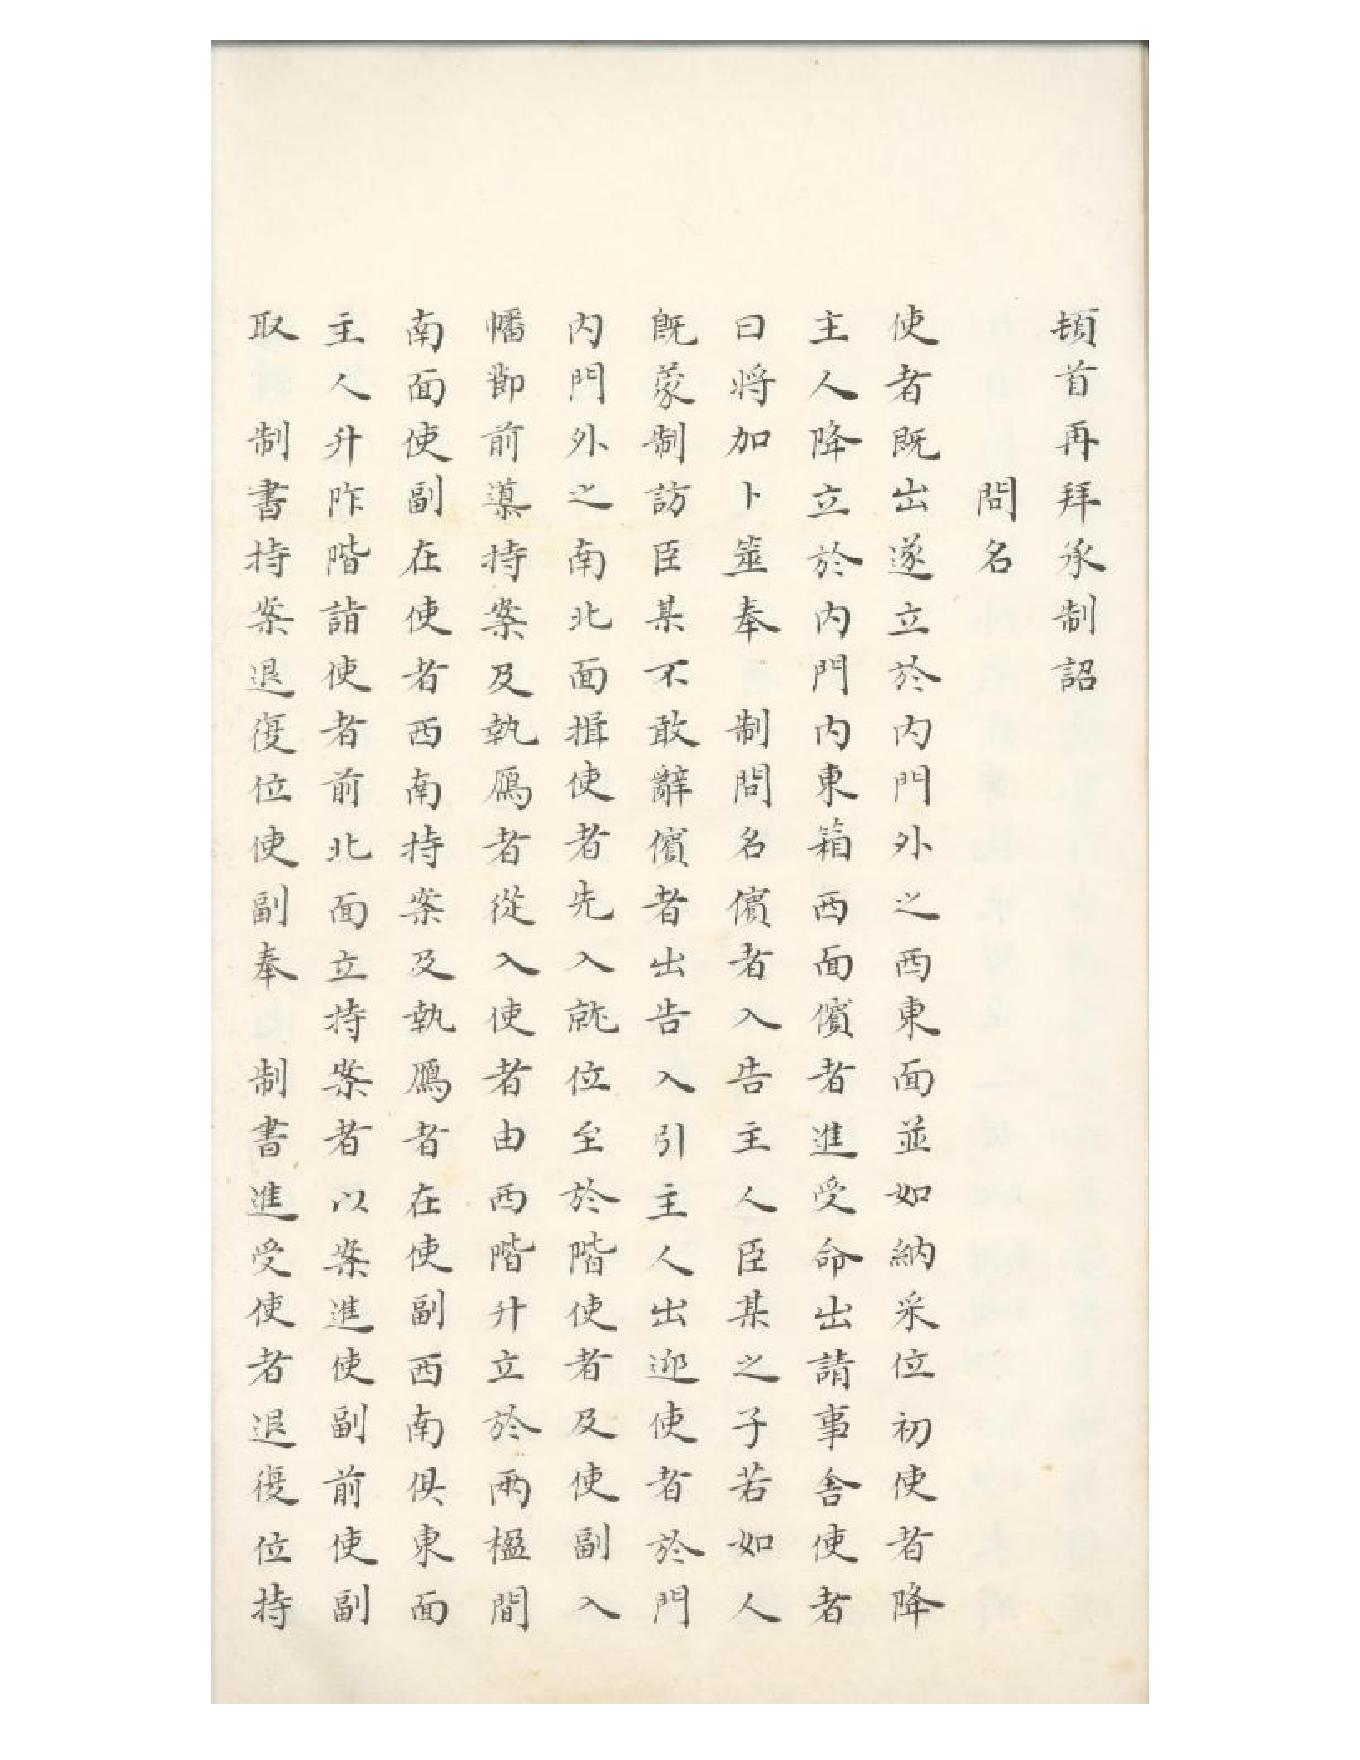 頓首再拜承制詔
問名
使者既出遂立於內門外之西東面並如納采位初使者降
主人降立於內門內東箱西面儐者進受命出請事舍使者
曰將加卜筮奉制問名儐者入告主人臣某之子若如人
既蒙制訪臣某不敢辭儐者出告入引主人出迎使者於門
內門外之南北面揖使者先入就位至於階使者及使副入
幡節前導持案及執鴈者從入使者由西階升立於兩楹間
南面使副在使者西南持案及執鴈者在使副西南俱東面
主人升阼階詣使者前北面立持案者以案進使副前使副
取制書持案退復位使副奉制書進受使者退復位持